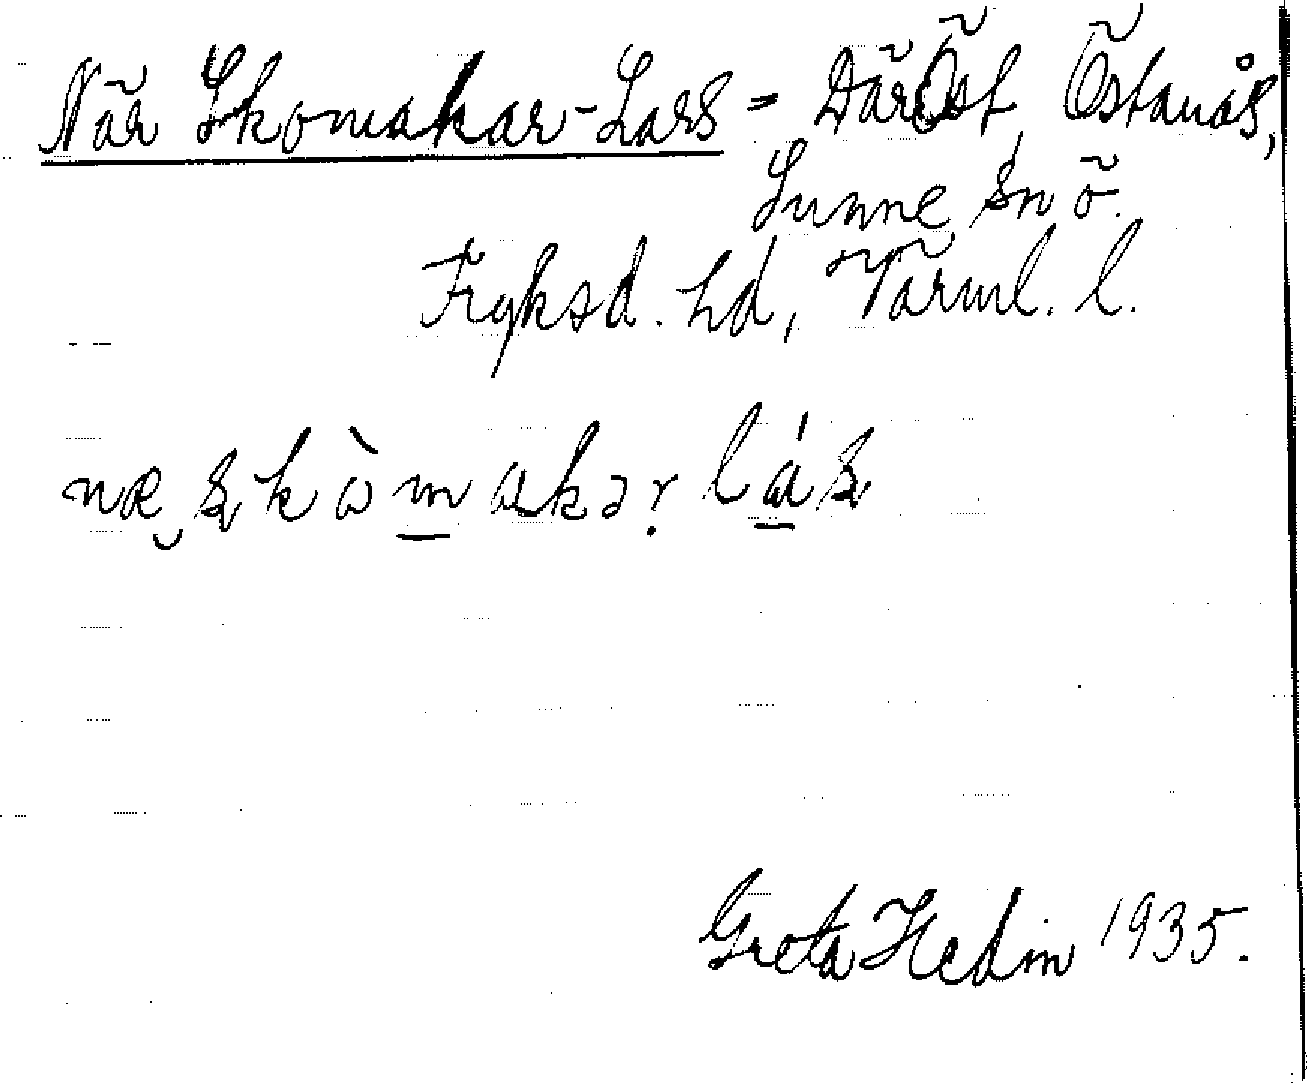 När Skomakar-Lars = Där Öst, Östanås,
Sunne sn ö.
Fryksd. hd, Värml. l.
næ skòmakər lás
Greta Hedin 1935.